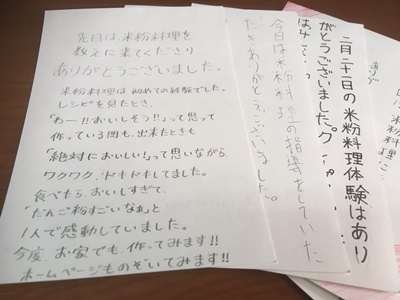 先日は、米粉料理を
教えに来てくださり
ありがとうございました。
米粉料理は初めての経験でした。
レシピを見たとき、
「わー!!おいしそう!!」って思って
作っている間も、出来たときも
「絶対においしい!」って思いながら、
ワクワク、ドキドキしてました。
食べたら、おいしすぎて、
「だんご粉すごいなぁ」と
1人で感動していました。
今度、お家でも、作ってみます!!
ホームページものぞいてみます!!
二月二十一日の米粉料理体験はあり
がとうございました。ク
今日は米粉料理の指導をしていた
だきありがとうございました。